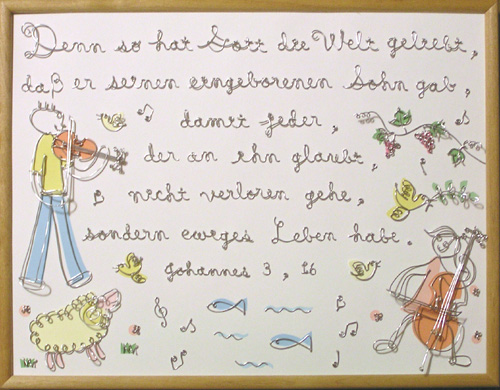 Denn so hat Gott die Welt geliebt,
daß er seinen eingeborenen Sohn gab,
damit jeder,
der an ihn glaubt,
nicht verloren gehe,
sondern ewiges Leben habe.
Johannes 3, 16